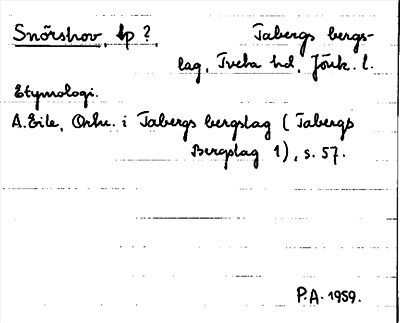 Snörshov, bp ? Tabergs bergs-
lag, Tveta hd, Jönk. l.
Etymologi.
A. Eile, Ortn. i Tabergs bergslag (Tabergs
Bergslag 1), s. 57.
P.A. 1959.